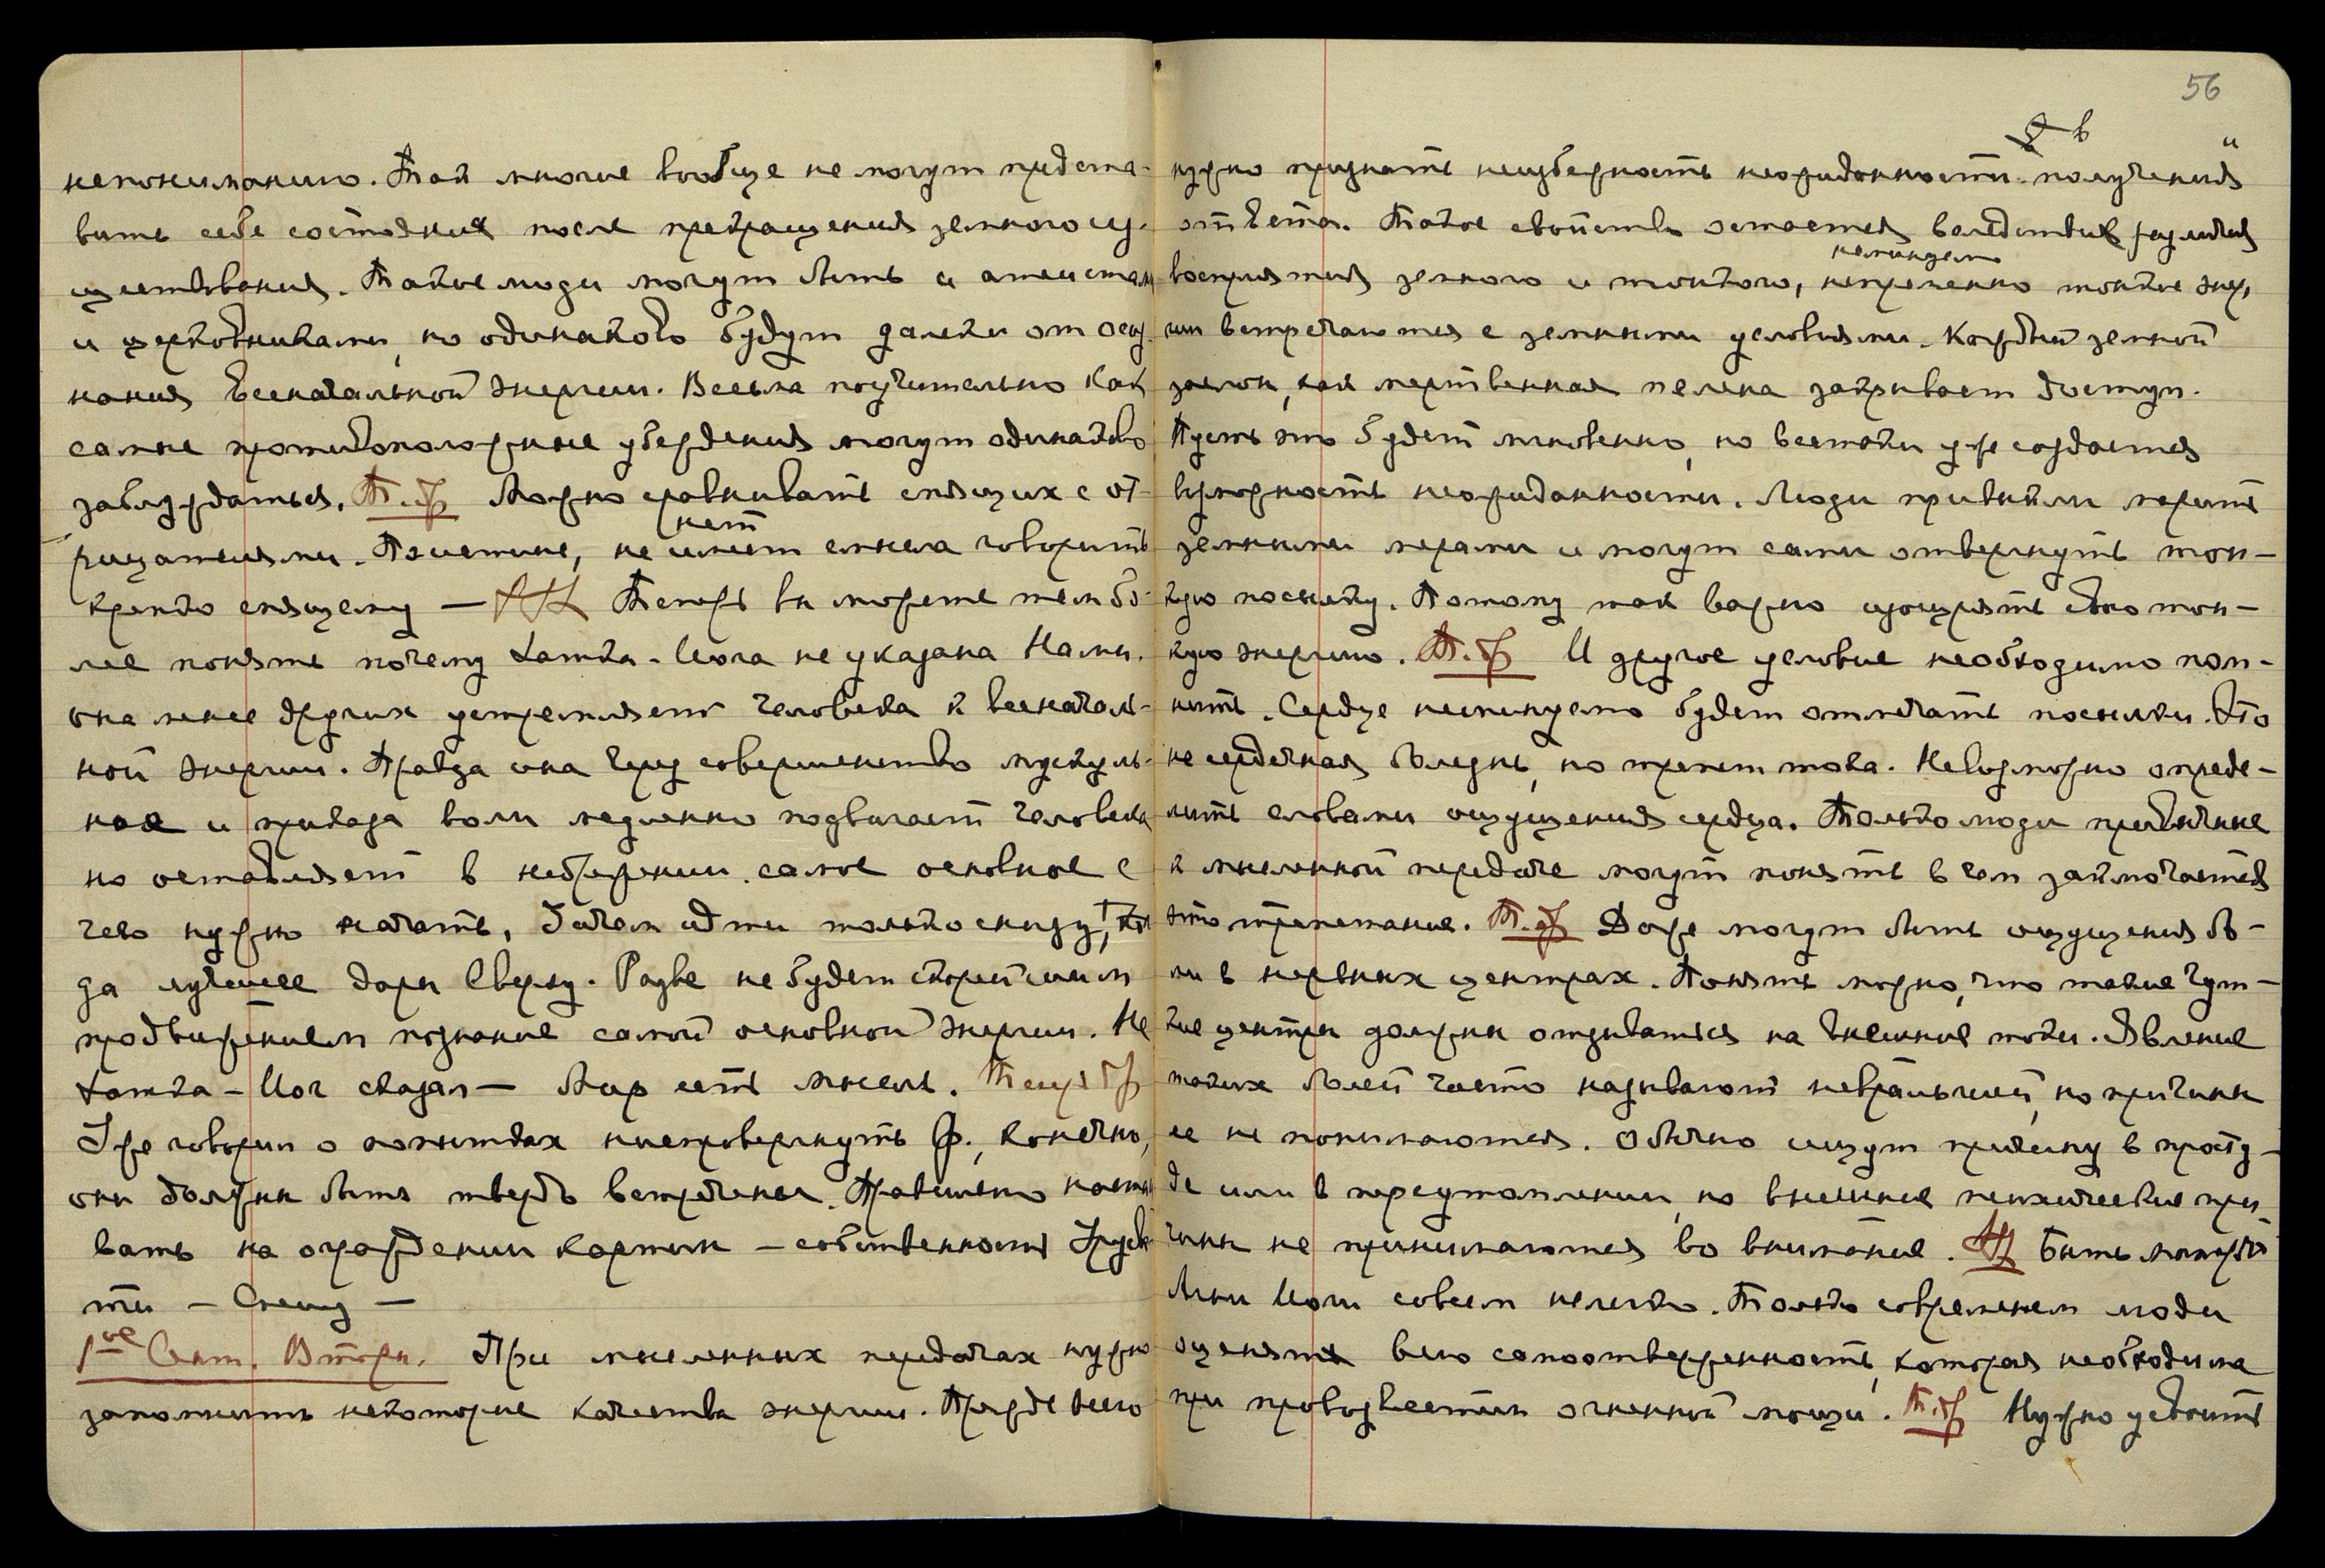 непониманию. Так многие вообще не могут предста-
вить себе состояния после прекращения земного су-
ществования. Такие люди могут быть и атеистами
и церковниками, но одинаково будут далеки от осоз-
нания всеначальной энергии. Весьма поучительно как
самые противоположные убеждения могут одинаково
заблуждаться. Т.ж Можно сравнивать спящих с от-
рицателями. Поистине, не имеет смысла говорить
нет
крепко спящему —
Теперь вы можете тем бо-
лее понять почему Хатха-Йога не указана Нами.
она менее других устремляет человека к всеначаль-
ной энергии. Правда она через совершенство мускуль-
ное и приказа воли медленно подвигает человека
но оставляет в небрежении самое основное с
чего нужно начать. Зачем идти только снизу, ког
да лучшее дары Сверху. Разве не будет скорейшим
продвижением познание самой основной энергии. Не
Хатха-Йог сказал — Мир есть мысль.
Уже говорил о попытках ниспровергнуть Ф., конечно,
они должны быть твердо встречены. Правильно настаи
вать на ограждении картин — собственность
— Спешу —
1ое Сент. Вторн. При мысленных передачах нужно
запомнить некоторые качества энергии. Прежде всего
56
в
нужно признать неизбежность неожиданности получения
ответа. Такое свойство остается вследствие различия
восприятия земного и тонкого, непременно тонкие энер
неминуемо
гии встречаются с земными условиями. Каждый земной
заслон, как мертвенная пелена закрывает доступ.
Пусть это будет мгновенно, но всетаки уже создается
возможность неожиданности. Люди привыкли мерить
земными мерами и могут сами отвергнуть тон-
кую посылку. Потому так важно изощрять свою тон-
кую энергию. Т.ж И другое условие необходимо пом-
нить. Сердце неминуемо будет отмечать посылки. Это
не сердечная болезнь, но трепет тока. Невозможно опреде-
лить словами ощущения сердца. Только люди привычные
к мысленной передаче могут понять в чем заключается
это трепетание. Т.ж Даже могут быть ощущения бо-
ли в нервных центрах. Понять можно, что такие чут-
кие центры должны отзываться на внешние токи. Явление
таких болей часто называют невральгией, но причины
ее не понимаются. Обычно ищут причину в просту-
де или в переутомлении, но внешние психические при-
чины не принимаются во внимание. Быть
Агни Йоги совсем нелегко. Только современем люди
оценят всю самоотверженность, которая необходима
при провозвестии огненной мощи. Т.ж Нужно усвоить